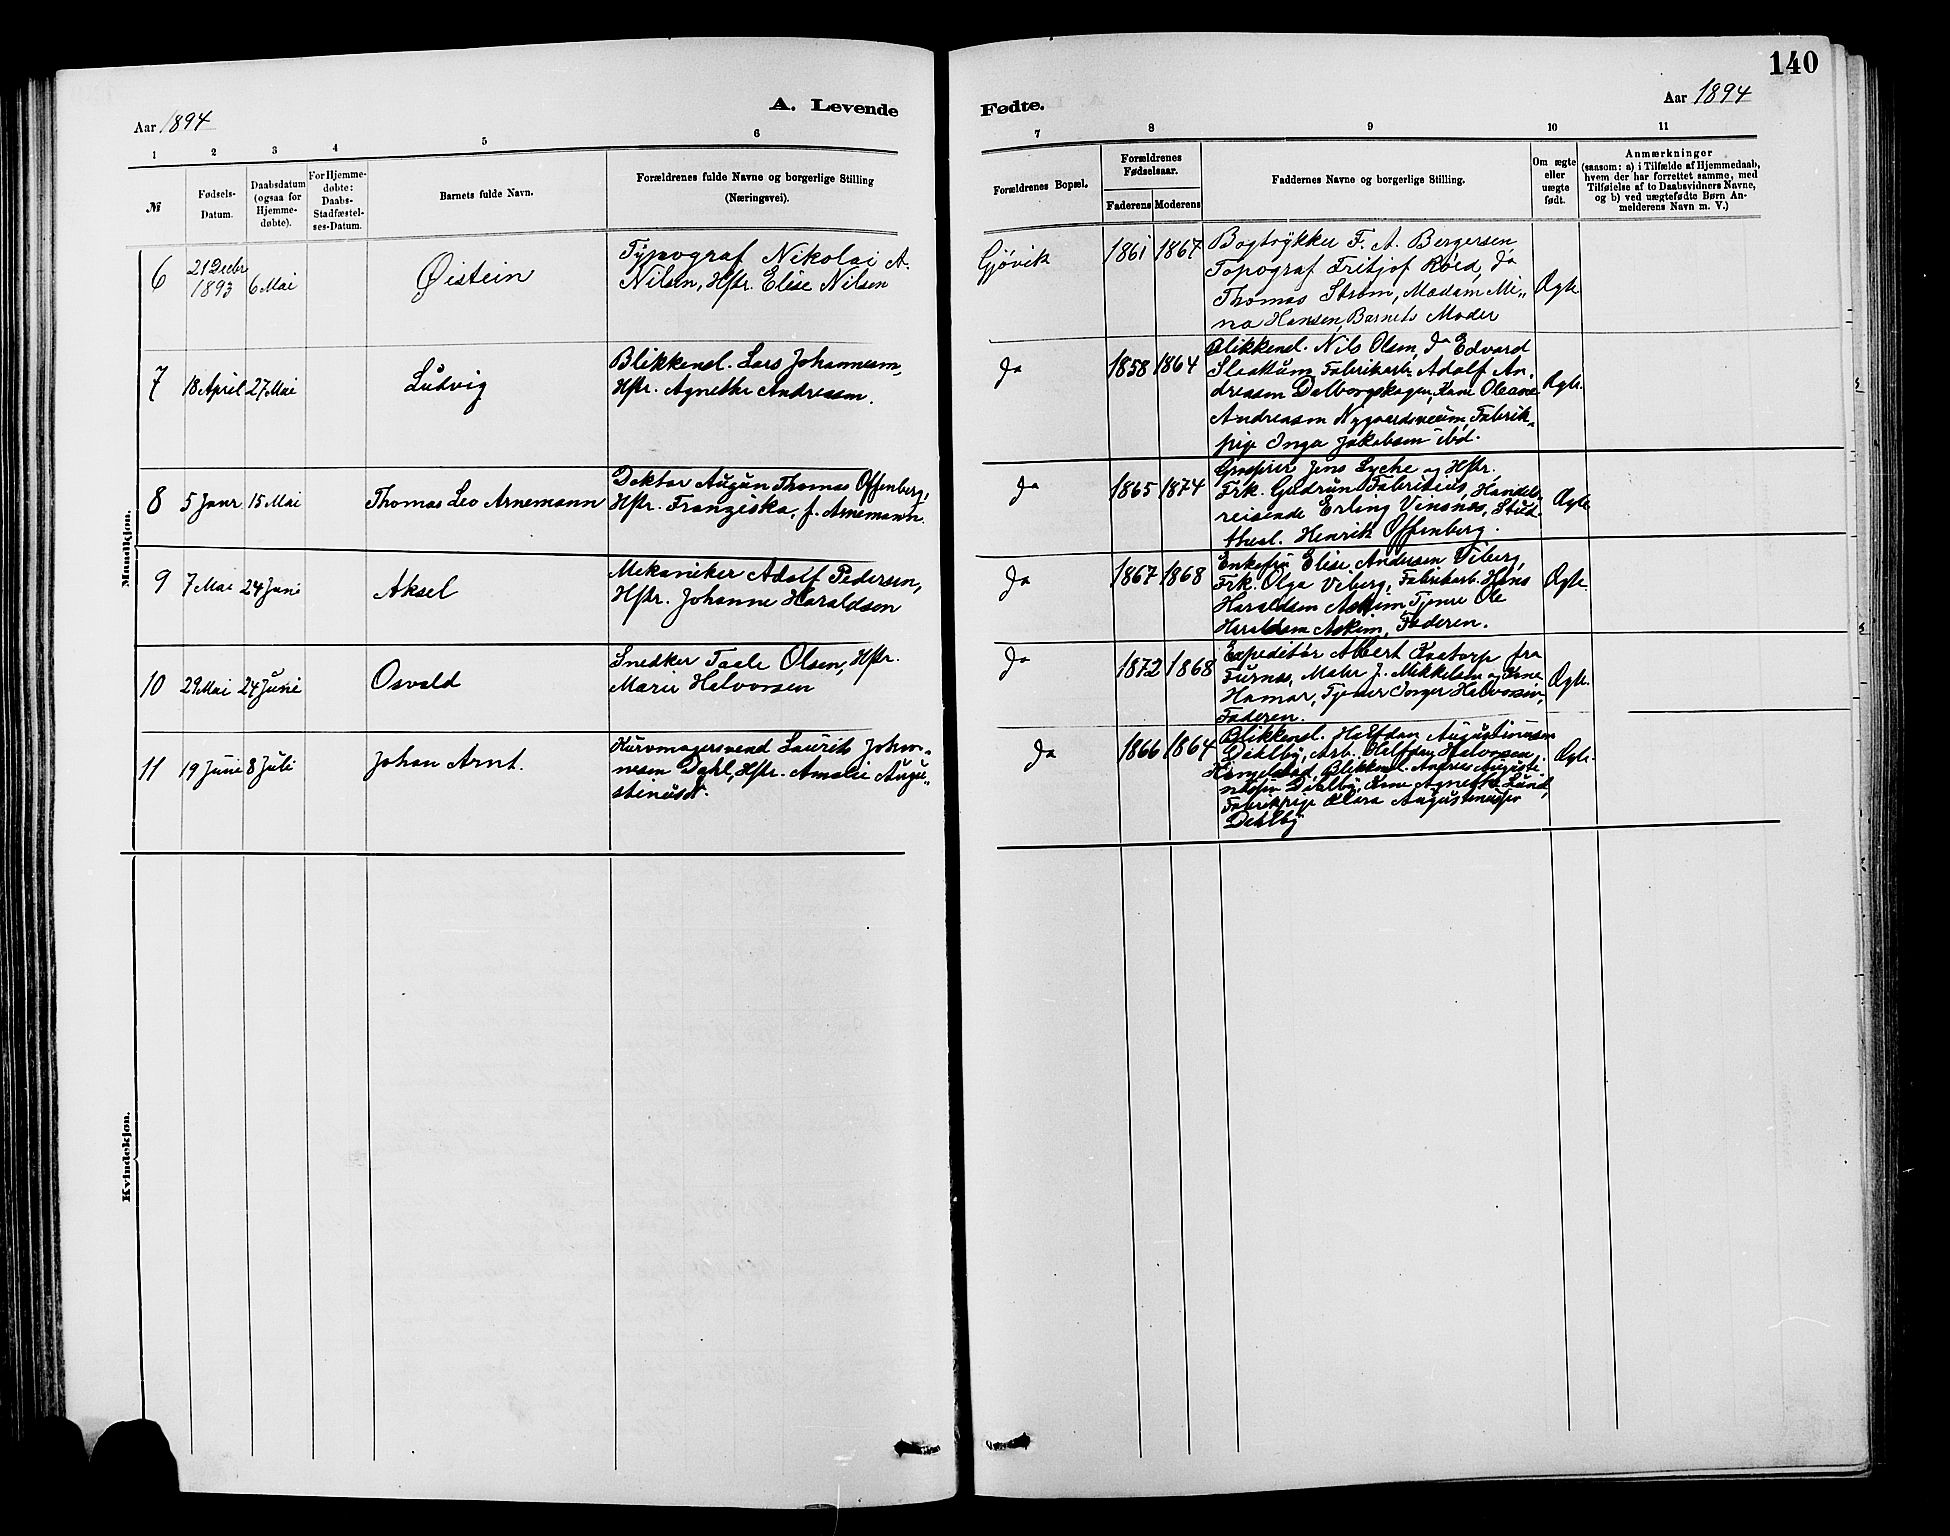 140
A. Levende
Fødte.
Aar 1894
Aar 1894
1 2 3 4 5 6 7 8 9 10 11
№
Fødsels-
Datum.
Daabsdatum
(ogsaa for
Hjemme-
døbte).
For Hjemme-
døbte:
Daabs-
Stadfæstel-
ses-Datum.
Barnets fulde Navn.
Forældrenes fulde Navne og borgerlige Stilling
(Næringsvei).
Forældrenes Bopæl.
Forældrenes
Fødselsaar.
Faderens Moderens
Faddernes Navne og borgerlige Stilling.
Om ægte
eller
uægte
født.
Anmærkninger
(saasom: a) i Tilfælde af Hjemmedaab,
hvem der har forrettet samme, med
Tilføielse af to Daabsvidners Navne,
og b) ved uægtefødte Børn An-
melderens Navn m. V.)
Mandkjøn.
6
21 Decbr
1893
6 Mai
Øistein
Typograf Nikolai A.
Nilsen, Hstr. Elise Nilsen
Gjøvik
1861 1867
Bogtrykker F. A. Bergersen
Topograf Fritjof Røed, do
Thomas Strøm, Madam Mi-
na Hansen, Barnets Moder
Ægte
7
18 April 27 Mai
Ludvig
Blikkensl. Lars Johannesen,
Hstr. Agnethe Andreasen.
do
1858 1864
Blikkensl. Nils Olsen, do Edvard
Fabrikarb. Adolf An-
dreasen Dalborgskogen, Kone Oleane
Andreasen Fabrik-
pige Inga Jakobsen ibd.
Ægte.
8
5 Janr 15 Mai
Thomas Leo Arnemann
Doktor August Thomas Offenberg,
Hstr. Franziska, f. Arnemann.
do
1865 1874
Grosserer Jens Lyche og Hstr.
Frk. Gudrun Fabritius, Handels-
reisende Erling Vinsnes, Stud.
theol. Henrik Offenberg.
Ægte
9
7 Mai 24 Juni
Aksel
Mekaniker Adolf Pedersen,
Hstr. Johanne Haraldsen
do
1867 1868
Enkefru Elise Andersen Viberg,
Frk. Olga Viberg, Fabrikarb. Hans
Haraldsen Askim, Tjener Ole
Haraldsen Askim, Faderen.
Ægte.
10
29 Mai 24 Juni
Osvald
Snedker Taale Olsen, Hstr.
Marie Halvorsen
do
1872 1868
Expeditør Albert Kvatorp fra
Furnes, Maler J. Mikkelsen og Kone
Hamar, Tjener Inger Halvorsen,
Faderen.
Ægte.
11
19 Juni 8 Juli
Johan Arnt.
Kurvmagersvend Laurits Johan-
nesen Dahl, Hstr. Amalie Augu-
stinusd.
do
1866 1864
Blikkensl. Halfdan Augustinusen
Dehlby, Arb. Halfdan Halvorsen
Blikkensl. Andreas Augusti
nusen Dehlby, Kone Agnethe Lund,
Fabrikpige Klara Augustinusen
Dehlby
Ægte.
Kvindekjøn.